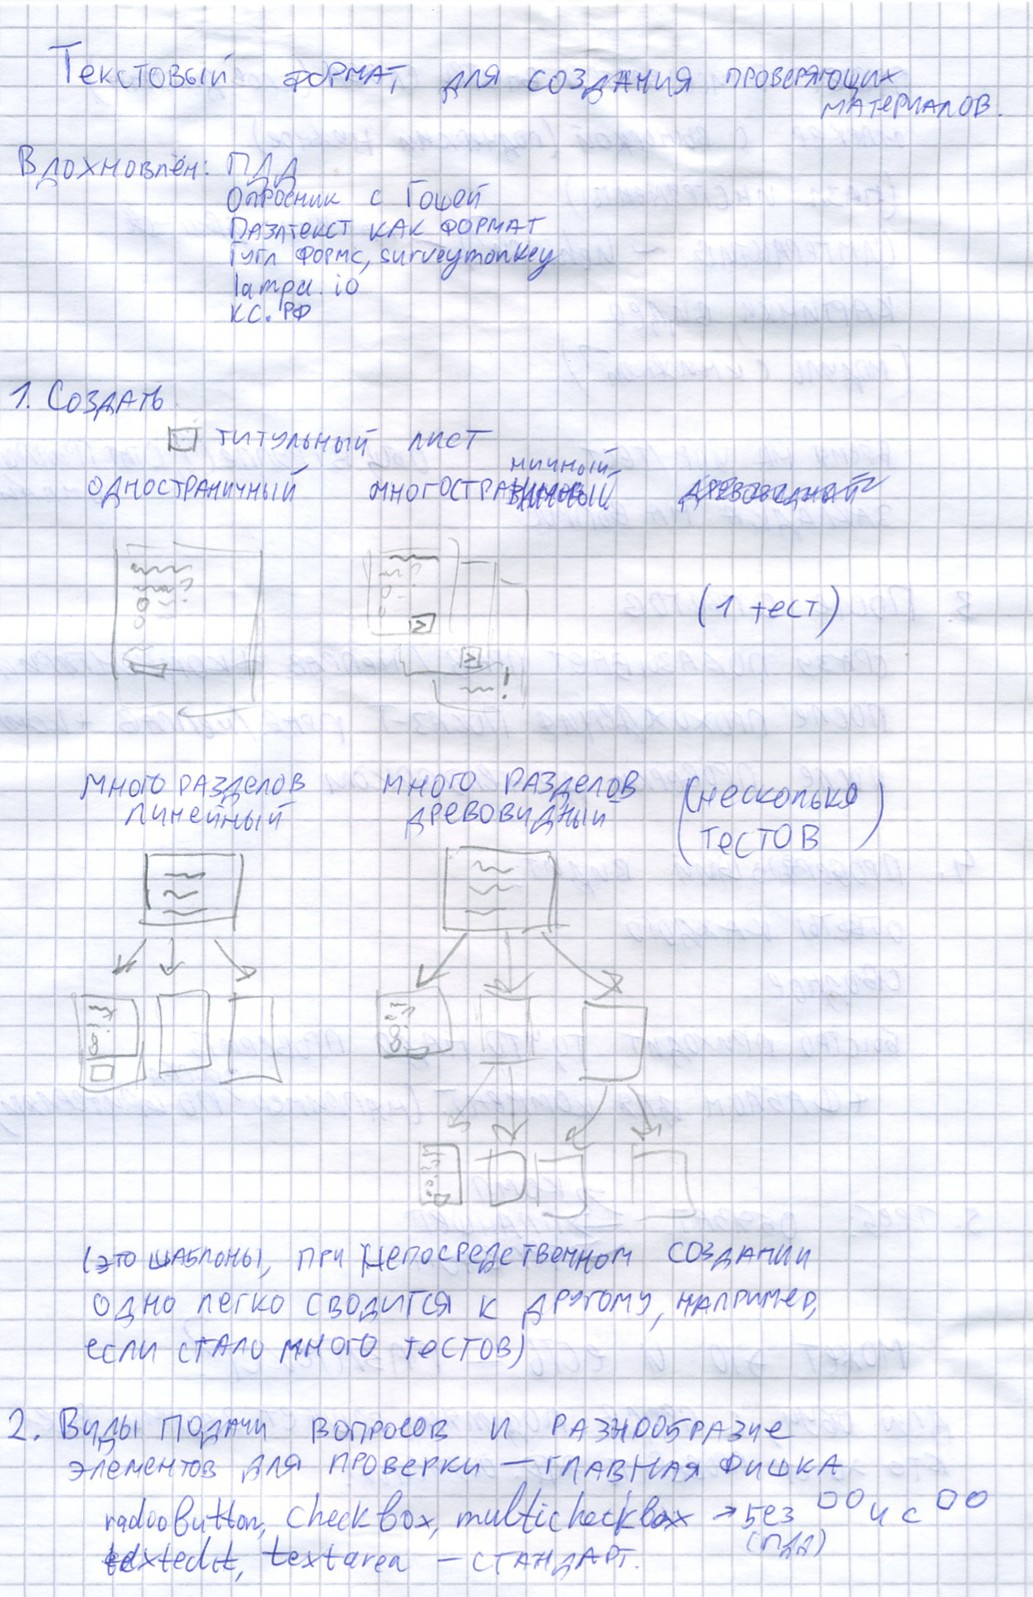 Текстовый формат для создания проверяющих
материалов.
Вдохновлён: ПДД
Опросник с Гошей
Пазлтекст как формат
Гугл формс, surveymonkey
lampa.io
КС.РФ
1. Создать
титульный лист
одностраничный многостраничный древовидный
(1 тест)
много разделов линейный
много разделов древовидный
(несколько тестов)
(это шаблоны, при непосредственном создании
одно легко сводится к другому, например,
если стало много тестов)
2. Виды подачи вопросов и разнообразие
элементов для проверки — главная фишка
radiobutton, checkbox, multicheckbox → без и с
(ПДД)
textedit, textarea — стандарт.